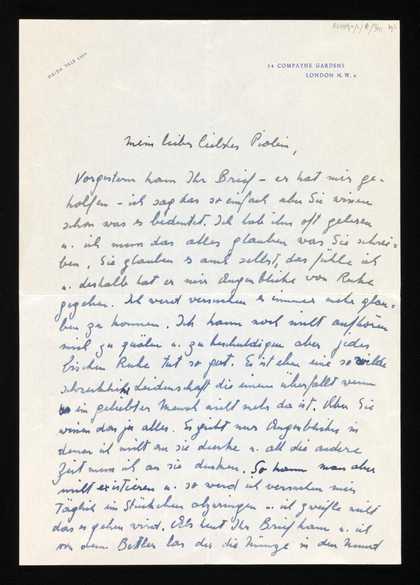 14 COMPAYNE GARDENS
LONDON N.W.6
Mein lieber liebster Piolin,
Vorgestern kam Ihr Brief – er hat mir ge-
holfen – ich sag das so einfach aber Sie wissen
schon was es bedeutet. Ich hab ihn oft gelesen
u. ich muss das alles glauben was Sie schrei-
ben. Sie glauben es auch selbst, das fühle ich
u. deshalb hat er mir Augenblicke von Ruhe
gegeben. Ich werd versuchen es immer mehr glau-
ben zu können. Ich kann noch nicht aufhören
mich zu quälen u. zu beschuldigen aber jedes
bischen Ruhe tut so gut. Es ist eben eine so wilde
schreckliche Leidenschaft die einen überfällt wenn
ein geliebter Mensch nicht mehr da ist. Aber Sie
wissen das ja alles. Es gibt nur Augenblicke in
denen ich nicht an sie denke u. all die andere
Zeit muss ich an sie denken. So kann man aber
nicht existieren u. so werd ich versuchen mir
täglich ein Stückchen abzuringen u. ich zweifle nicht
das es gehen wird. Als heut Ihr Brief kam u. ich
von dem Bettler las der die Münze in den Mund